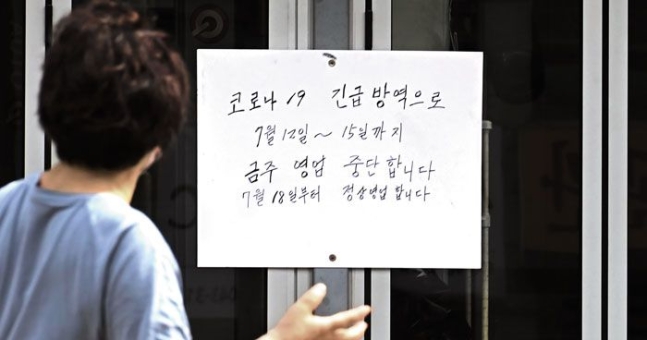 코로나 19 긴급 방역으로
7월 12일 ~ 15일까지
금주 영업 중단합니다
7월 18일부터 정상영업 합니다